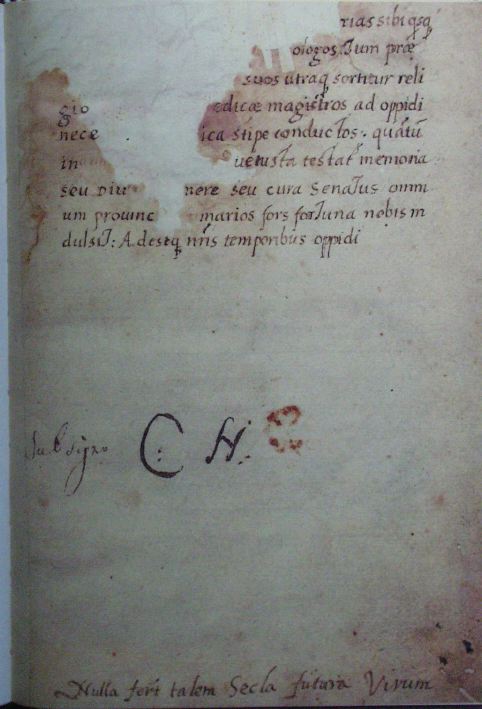 rias sibi qsq
ologos. Tum præ
suos utraq sortitur reli
gio edicæ magistros ad oppidi
nece ica stipe conductos: quātū
in uetusta testat memoria
seu Diu nere seu cura Senatus omni
um prouinc marios fors fortuna nobis in
dulsit: Adestq nr̄is temporibus oppidi
Sub signo C: H:
Nulla fert talem Secla futura Virum